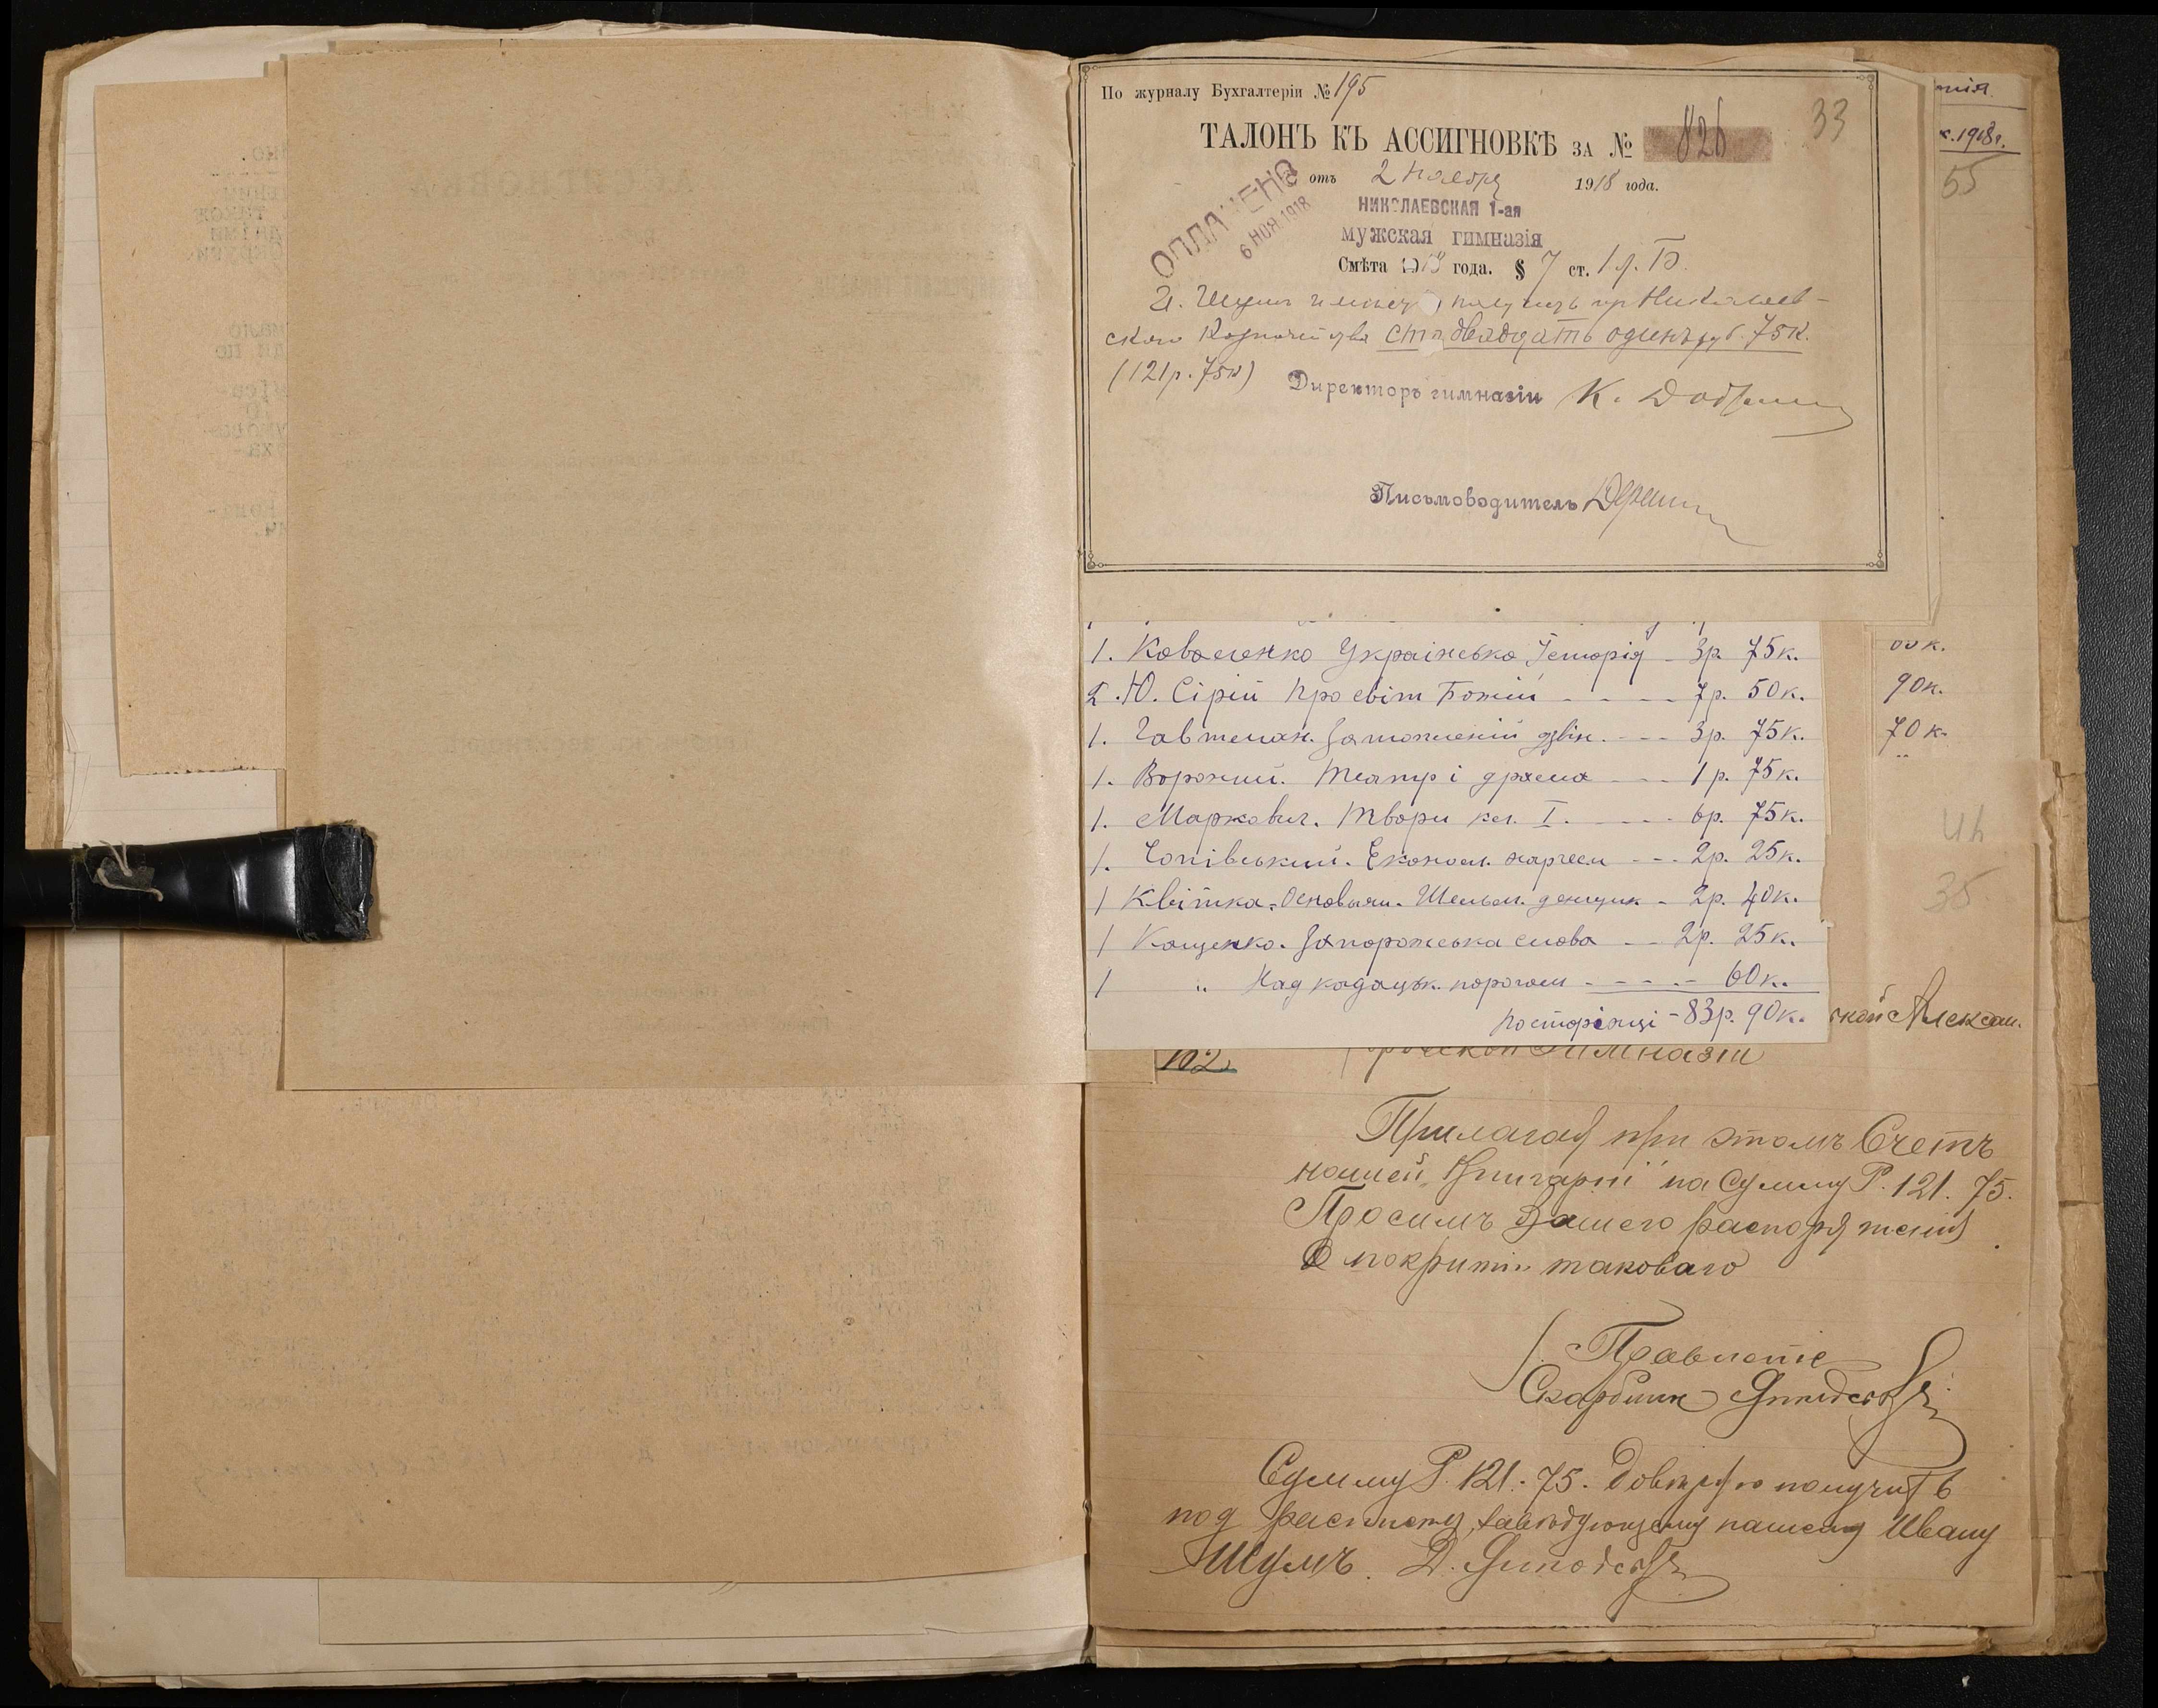 По журналу Бухгалтеріи № 195
ТАЛОНЪ КЪ АССИГНОВКѢ ЗА № 826
33
отъ 2 Ноября 1918 года.
ОПЛАЧЕНО
6 НОЯ 1918
НИКОЛАЕВСКАЯ 1-ая
мужская гимназія
Смѣта 1918 года. § 7 ст. 1 л. Б.
И. Шумъ имѣетъ получить изъ Николаев-
скаго Казначейства сто двадцать одинъ руб. 75 к.
(121 р. 75 к)
Директоръ гимназіи К.
Письмоводитель
к. 1918 г.
55
1. Коваленко Українська Історія - 3 р. 75 к.
2. Ю. Сірий Про світ Божий - - - - 7 р. 50 к.
1. Гавптман. Затоплений дзвін. - - - 3 р. 75 к.
1. Вороний. Театр і драма - - - 1 р. 75 к.
1. Маркович. Твори кн. I. - - - - 6 р. 75 к.
1. Чопівський. Економ. нариси - - - 2 р. 25 к.
1 Квітка-Основян. Шельм. денщик - 2 р. 40 к.
1 Кащенко. Запорожська слава - - 2 р. 25 к.
1 „ Над кодацьк. порогом - - - - - 60 к.
По сторінці - 83 р. 90 к.
90 к.
70 к.
35
ской Алексан.
102
гимназіи
Прилагая при этомъ Счетъ
нашей „Книгарні" на Сумму Р. 121. 75.
Просимъ Вашего распоряженія
о покритіи таковаго
Скарбник
Сумму Р. 121. 75. Довѣряю получить
под расписку, завѣдующему нашему Ивану
Шумъ. Д.